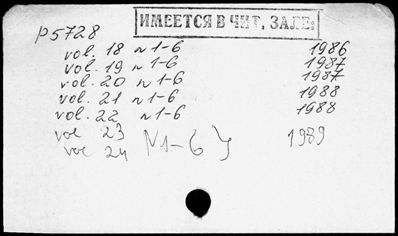 ИМЕЕТСЯ В ЧИТ. ЗАЛЕ:
p5728
vol. 18 N 1-6 1986
vol. 19 N 1-6 1987
vol. 20 N 1-6 1987
vol. 21 N 1-6 1988
vol. 22 N 1-6 1988
vol 23
vol 24 N1-6 } 1989